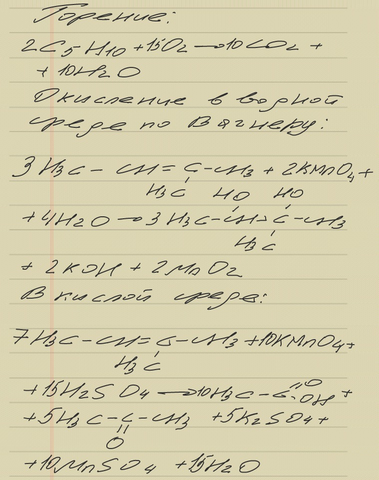 Горение:
2C5H10 + 15O2 → 10CO2 +
+ 10H2O
Окисление в водной
среде по Вагнеру:
3H3C – CH = C – CH3 + 2KMnO4 +
H3C HO HO
+ 4H2O → 3H3C – CH – C – CH3
H3C
+ 2KOH + 2MnO2
В кислой среде:
7H3C – CH = C – CH3 + 10KMnO4 +
H3C
+ 15H2SO4 → 10H3C – C = O OH +
+ 5H3C – C – CH3 + 5K2SO4 +
O
+ 10MnSO4 + 15H2O